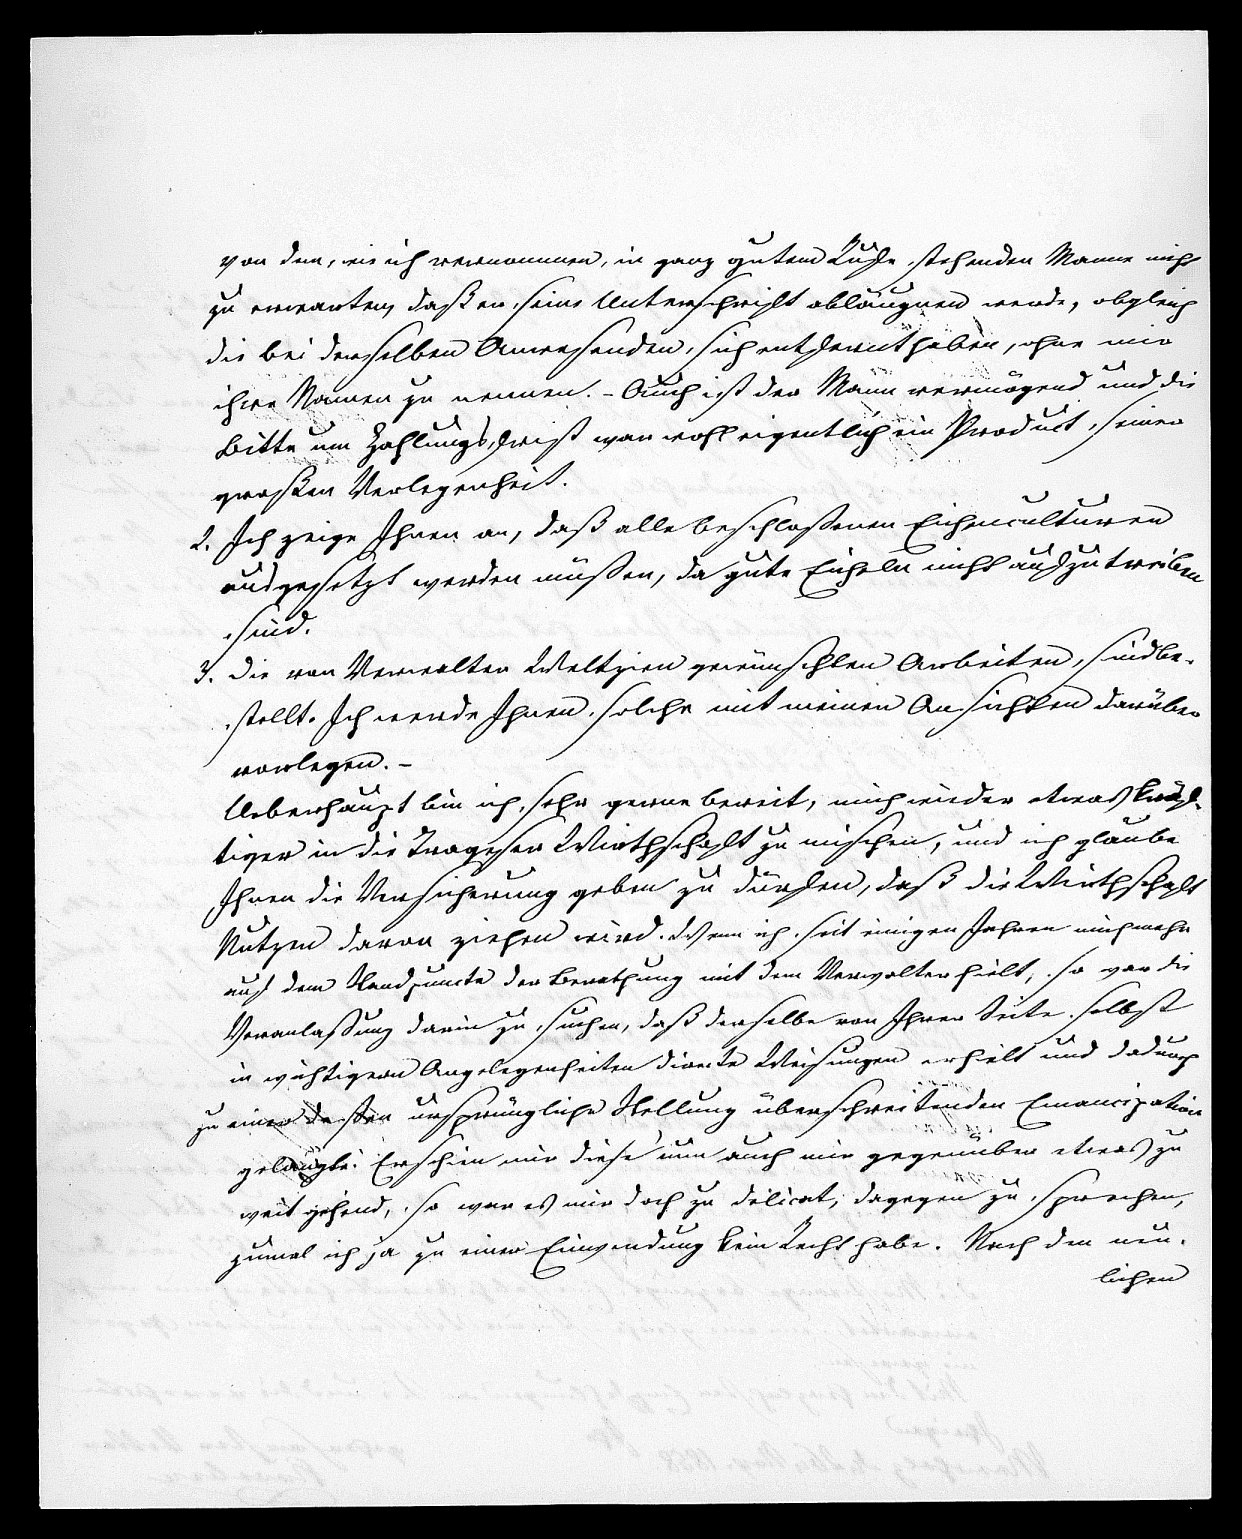 von dem, wie ich vernommen, in ganz gutem Rufe stehenden Manne nicht
zu erwarten, daß er seine Unterschrift abläugnen werde, obgleich
die bei derselben Anwesenden, sich entfernt haben, ohne mir
ihre Namen zu nennen. – Auch ist der Mann vermögend und die
Bitte um Zahlungsfrist war wohl eigentlich ein Product seiner
großen Verlegenheit.
2. Ich zeige Ihnen an, daß alle beschloßenen Eichenculturen
ausgesetzt werden müßen, da gute Eicheln nicht aufzutreiben
sind.
3. Die von Verwalter Weltzien gewünschten Arbeiten, sind be-
stellt. Ich werde Ihnen solche mit meinen Ansichten darüber
vorlegen. –
Ueberhaupt bin ich sehr gerne bereit, mich wieder etwas kräf-
tiger in die Trageser Wirthschaft zu mischen, und ich glaube
Ihnen die Versicherung geben zu dürfen, daß die Wirthschaft
Nutzen davon ziehen wird. Wenn ich seit einigen Jahren mich mehr
auf dem Standpuncte der Berathung mit dem Verwalter hielt, so war die
Veranlaßung darin zu suchen, daß derselbe von Ihrer Seite selbst
in wichtigern Angelegenheiten directe Weisungen erhielt und dadurch
zu einer deßen ursprüngliche Stellung überschreitenden Emancipation
gelangte. Erschien mir diese nun auch mir gegenüber etwas zu
weit gehend, so war es mir doch zu délicat, dagegen zu sprechen,
zumal ich ja zu einer Einwendung kein Recht habe. Nach den neu-
lichen